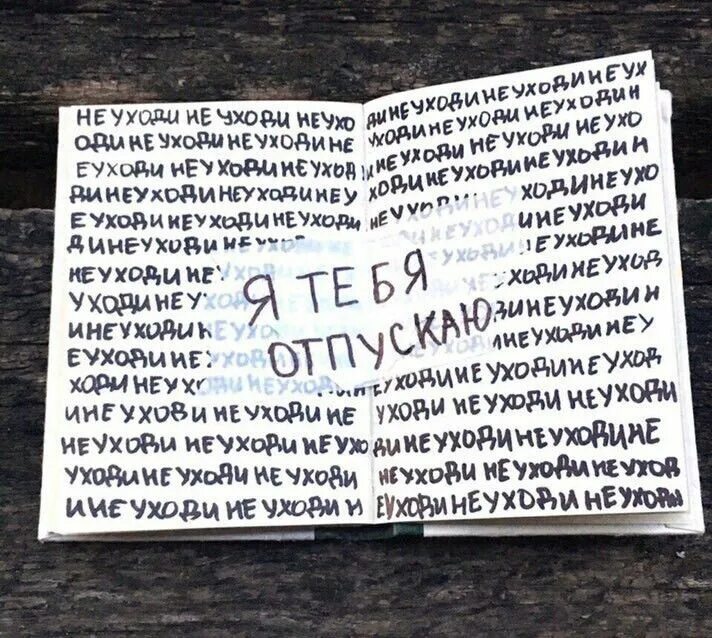 НЕ УХОДИ НЕ УХОДИ НЕУХО
ОДИ НЕ УХОДИ НЕУХОДИ НЕ
ЕУХОДИ НЕУХОДИ НЕУХОД
ДИ НЕУХОДИ НЕУХОДИ НЕУ
ЕУХОДИ НЕУХОДИ НЕУХОДИ
ДИ НЕУХОДИ НЕУХО
НЕУХОДИ НЕ УХОДИ
УХОДИ НЕУ ХОДИ
ИНЕУХОДИ НЕУХО
ЕУХОДИ НЕ УХОД
ХОДИ НЕУХОДИ НЕУХОДИ
ИНЕУХОДИ НЕУХОДИ НЕ
НЕУХОДИ НЕУХОДИ НЕУХО
УХОДИ НЕУХОДИ НЕ УХОДИ
И НЕ УХОДИ НЕ УХОДИ Н
Я ТЕБЯ
ОТПУСКАЮ
ДИ НЕУХОДИ НЕУХОДИ НЕУХ
УХОДИ НЕ УХОДИ НЕУХОДИ
НЕУХОДИ НЕУХОДИ НЕУХО
ХОДИ НЕУХОДИ НЕУХОДИ Н
НЕУХОДИ НЕУХОДИ НЕУХО
ДИ НЕУХОДИ НЕУХОДИ
УХОДИ НЕУХОДИ НЕ
ХОДИ НЕУХОД
ДИ НЕУХОДИ Н
И НЕУХОДИ НЕУ
ЕУХОДИ НЕ УХОДИ НЕУХОД
УХОДИ НЕУХОДИ НЕУХОДИ
ДИ НЕУХОДИ НЕУХОДИ НЕ
НЕУХОДИ НЕ УХОДИ НЕУХОД
ЕУХОДИ НЕУХОДИ НЕУХОДИ